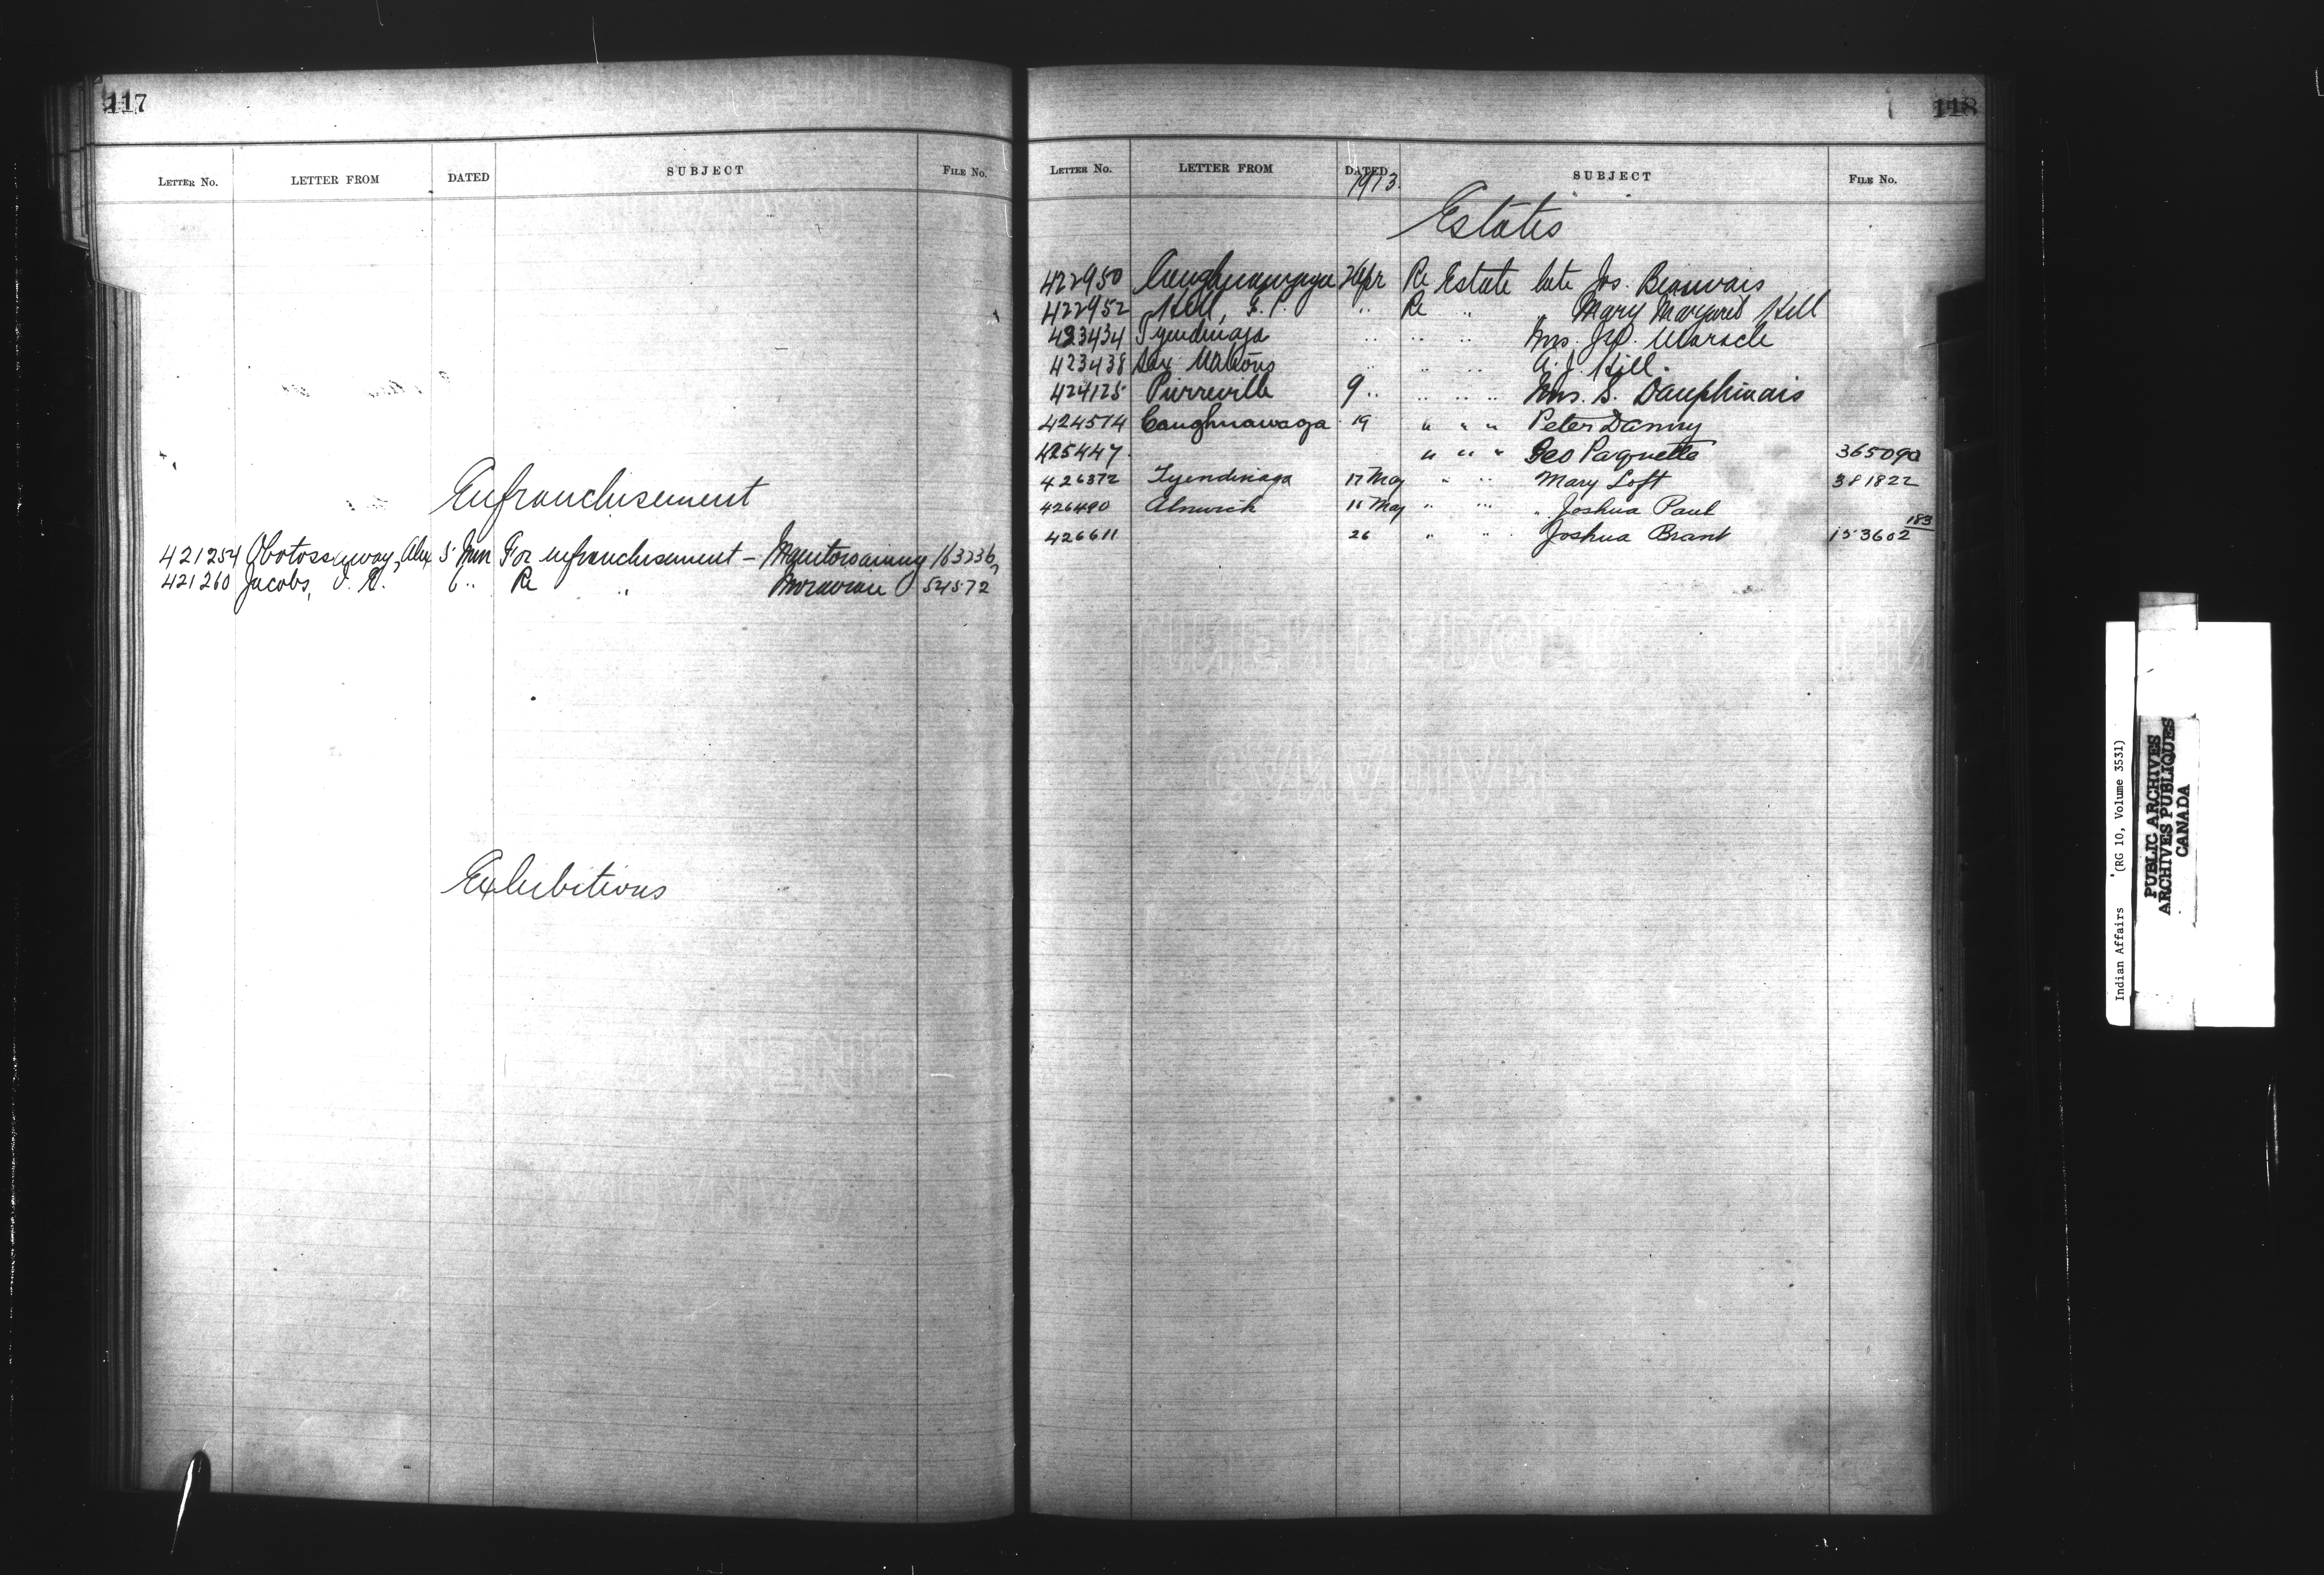 117
LETTER No. LETTER FROM DATED SUBJECT FILE No.
Enfranchisement
421254 Alex 5 For enfranchisement — Manitowaning
421260 Jacobs, 6 " Re " Moravian 54572
Exhibitions
118
LETTER No. LETTER FROM DATED SUBJECT FILE No.
1913.
Estates
422950 Caughnawaga Apr Re Estate late Jos. Beauvais
422952 Hill, " Re " Mary Margaret Hill
423434 Tyendinaga " " " Mrs. Maracle
423438 Six Nations " " " A. J. Hill.
424125 Pierreville 9 " " " " Mrs. S. Dauphinais
424574 Caughnawaga 19 " " " Peter Danny
425447 " " " Geo Paquette 365090
426372 Tyendinaga 17 May " " Mary Loft 381822
426490 Alnwick May " " " Joshua Paul
426611 26 " " Joshua Brant 153602 183
Indian Affairs (RG 10, Volume 3531)
PUBLIC ARCHIVES
ARCHIVES PUBLIQUES
CANADA